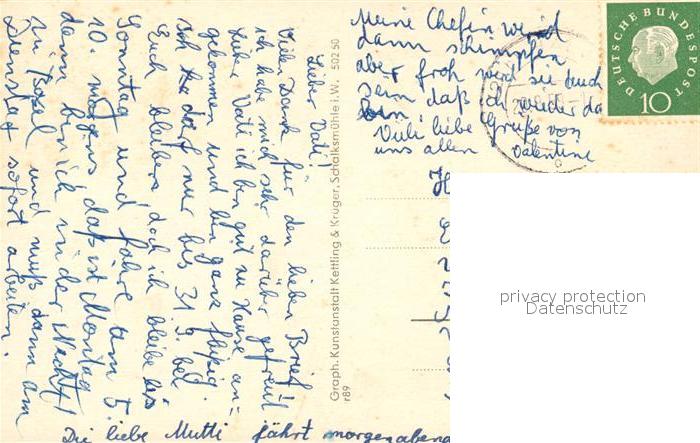 Lieber Vati!
Vielen Dank für den lieben Brief!
ich habe mich sehr darüber gefreut
Lieber Vati ich bin gut zu Hause an=
gekommen und bin ganz fleißig.
ich darf nur bis 31. 9. bei
Euch bleiben, doch ich bleibe bis
Sonntag und fahre am 5.
10. morgens, daß ist Montag
dann bin ich in der Nacht
in Basel und muß dann am
Dienstag sofort arbeiten.
Die liebe Mutti fährt morgen abend
Meine Chefin wird
dann schimpfen
aber froh wird sie auch
sein daß ich wieder da
bin
Viele liebe Grüße von
uns allen Valentine
Graph. Kunstanstalt Kettling & Krüger, Schalksmühle i. W. 50250
r89
DEUTSCHE BUNDESPOST
10
privacy protection
Datenschutz